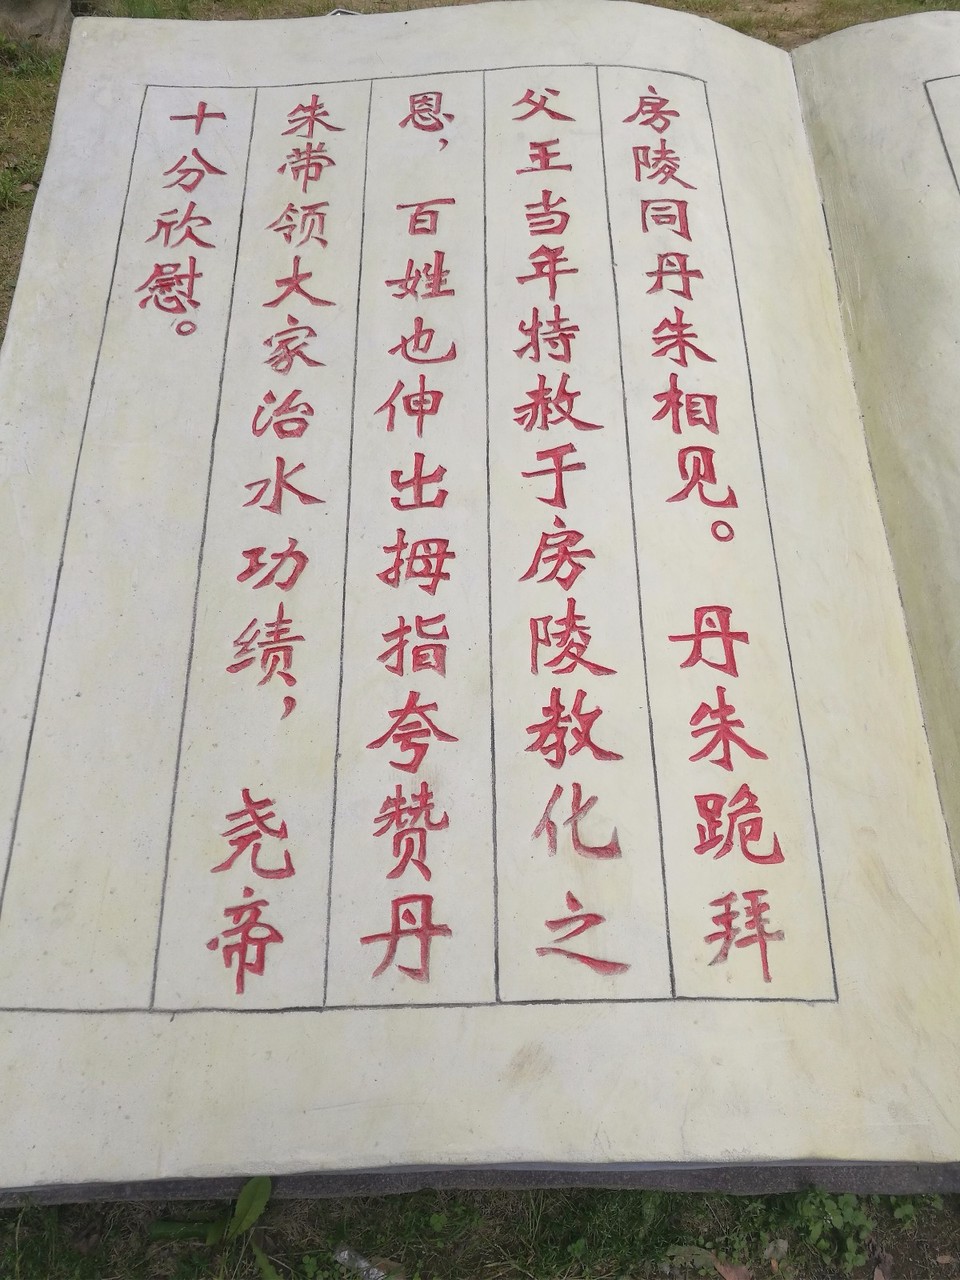 房陵同丹朱相见。丹朱跪拜
父王当年特赦于房陵教化之
恩，百姓也伸出拇指夸赞丹
朱带领大家治水功绩，尧帝
十分欣慰。